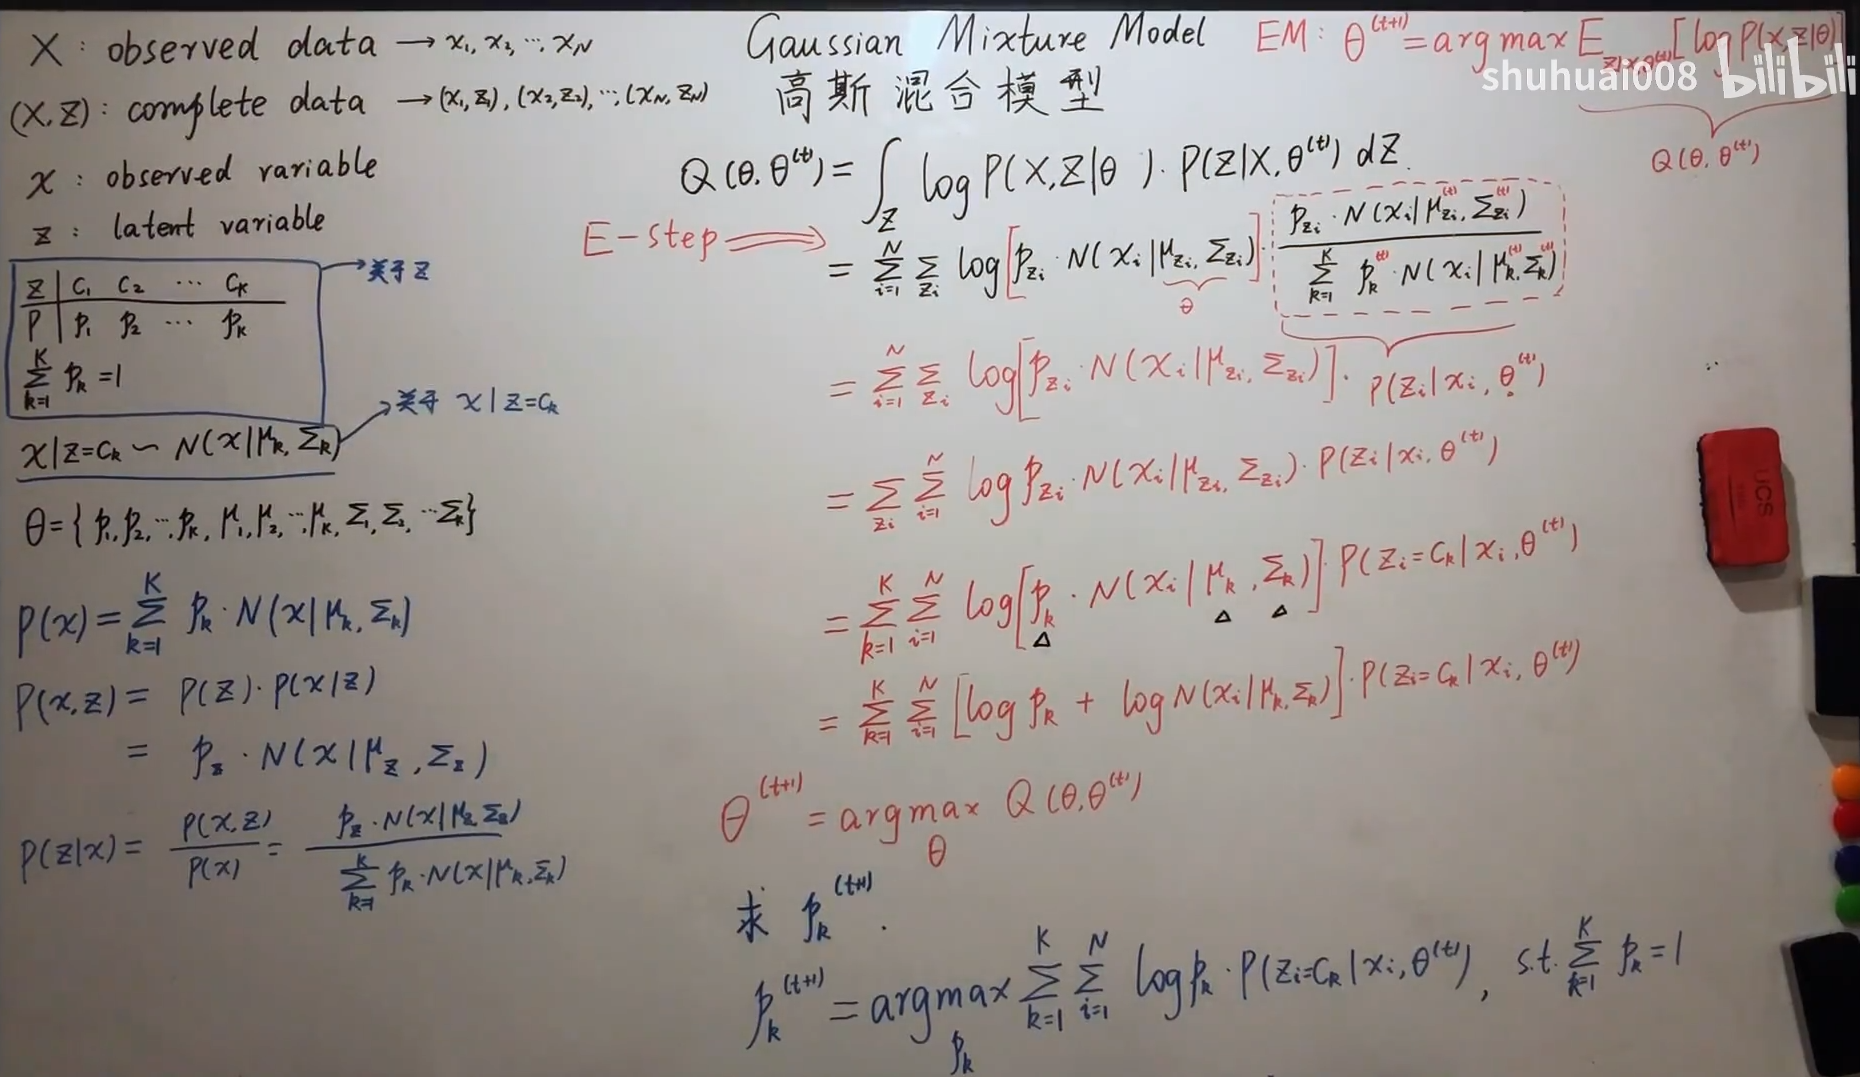 X : observed data → x₁, x₂, ⋯, x_N
(X, Z) : complete data → (x₁, z₁), (x₂, z₂), ⋯, (x_N, z_N)
x : observed variable
z : latent variable
z | C₁ C₂ ⋯ C_k
P | p₁ p₂ ⋯ p_k
∑_{k=1}^{K} p_k = 1
→ 关于 z
x|z=C_k ∼ N(x|μ_k, Σ_k)
→ 关于 x|z=C_k
θ = { p₁, p₂, ⋯, p_k, μ₁, μ₂, ⋯, μ_k, Σ₁, Σ₂, ⋯ Σ_k }
P(x) = ∑_{k=1}^{K} p_k · N(x|μ_k, Σ_k)
P(x, z) = P(z) · P(x|z)
= p_z · N(x|μ_z, Σ_z)
P(z|x) = P(x,z) / P(x) = p_z · N(x|μ_z, Σ_z) / ∑_{k=1}^{K} p_k · N(x|μ_k, Σ_k)
Gaussian Mixture Model
高斯混合模型
EM : θ^{(t+1)} = arg max E_{z|x,θ^{(t)}} [log P(x,z|θ)]
shuhuai008 bilibili
Q(θ, θ^{(t)})
Q(θ, θ^{(t)}) = ∫_Z log P(X, Z|θ) · P(Z|X, θ^{(t)}) dZ.
E-step ⟹
= ∑_{i=1}^{N} ∑_{z_i} log [p_{z_i} · N(x_i|μ_{z_i}, Σ_{z_i})] · p_{z_i} · N(x_i|μ_{z_i}^{(t)}, Σ_{z_i}^{(t)}) / ∑_{k=1}^{K} p_k^{(t)} · N(x_i|μ_k^{(t)}, Σ_k^{(t)})
θ
= ∑_{i=1}^{N} ∑_{z_i} log [p_{z_i} · N(x_i|μ_{z_i}, Σ_{z_i})] · P(z_i|x_i, θ^{(t)})
= ∑_{z_i} ∑_{i=1}^{N} log p_{z_i} · N(x_i|μ_{z_i}, Σ_{z_i}) · P(z_i|x_i, θ^{(t)})
= ∑_{k=1}^{K} ∑_{i=1}^{N} log [p_k · N(x_i|μ_k, Σ_k)] · P(z_i=C_k|x_i, θ^{(t)})
= ∑_{k=1}^{K} ∑_{i=1}^{N} [log p_k + log N(x_i|μ_k, Σ_k)] · P(z_i=C_k|x_i, θ^{(t)})
θ^{(t+1)} = arg max_θ Q(θ, θ^{(t)})
求 p_k^{(t+1)} .
p_k^{(t+1)} = arg max_{p_k} ∑_{k=1}^{K} ∑_{i=1}^{N} log p_k · P(z_i=C_k|x_i, θ^{(t)}), s.t. ∑_{k=1}^{K} p_k = 1
UCS